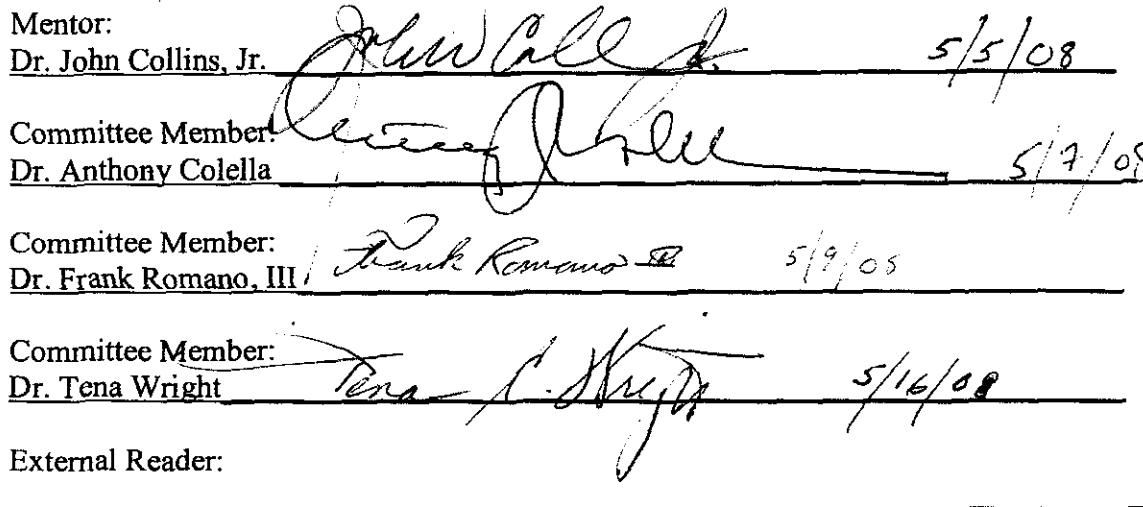 Mentor:
Dr. John Collins, Jr. John W Coll Jr. 5/5/08
Committee Member:
Dr. Anthony Colella 5/7/08
Committee Member:
Dr. Frank Romano, III Frank Romano III 5/9/08
Committee Member:
Dr. Tena Wright Tena C. Wright 5/16/08
External Reader: